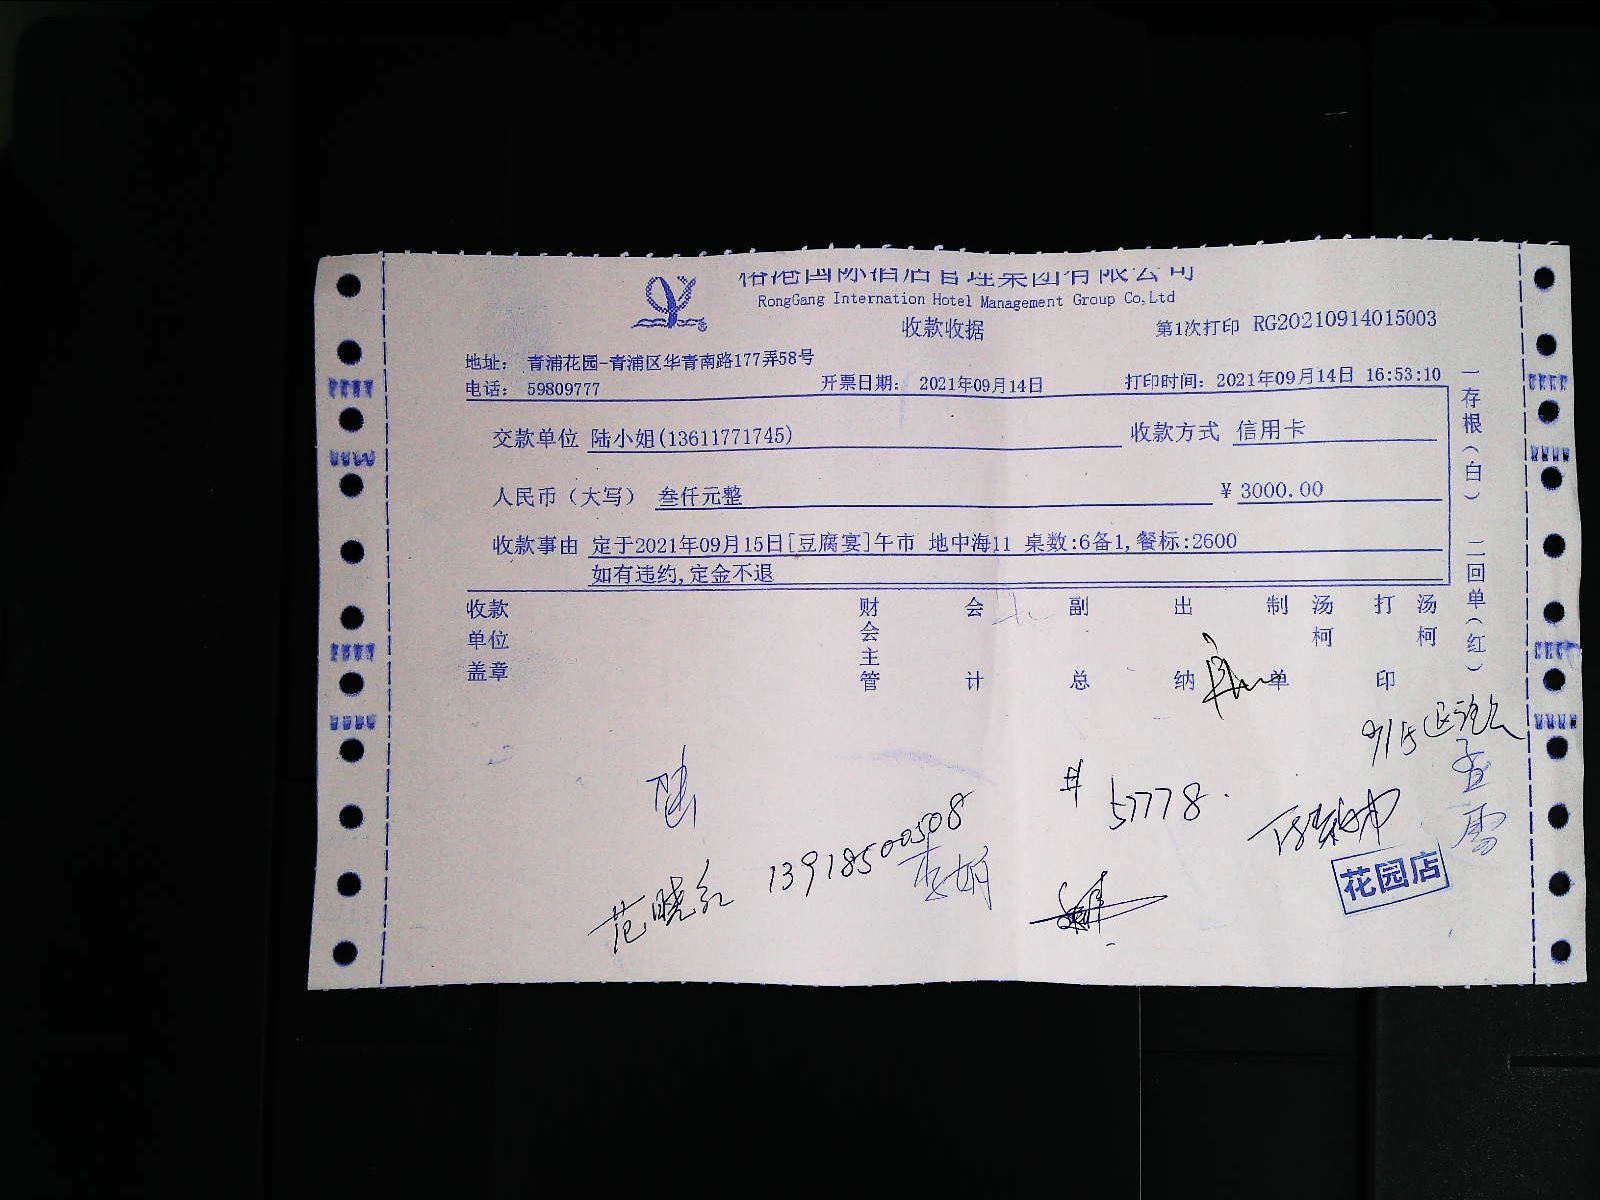 港国际酒店管理集团有限公司
RongGang Internation Hotel Management Group Co,Ltd
收款收据
第1次打印 RG20210914015003
地址： 青浦花园-青浦区华青南路177弄58号
电话： 59809777 开票日期： 2021年09月14日 打印时间：2021年09月14日 16:53:10
交款单位 陆小姐(13611771745) 收款方式 信用卡
人民币（大写） 叁仟元整 ¥ 3000.00
收款事由 定于2021年09月15日[豆腐宴]午市 地中海11 桌数:6备1,餐标:2600
如有违约,定金不退
收款单位盖章 财会主管 会计 副总 出纳 制单 汤柯 打印 汤柯
一存根（白） 二回单（红）
9/15
陆
# 57778.
范晓红 13918500508
花园店